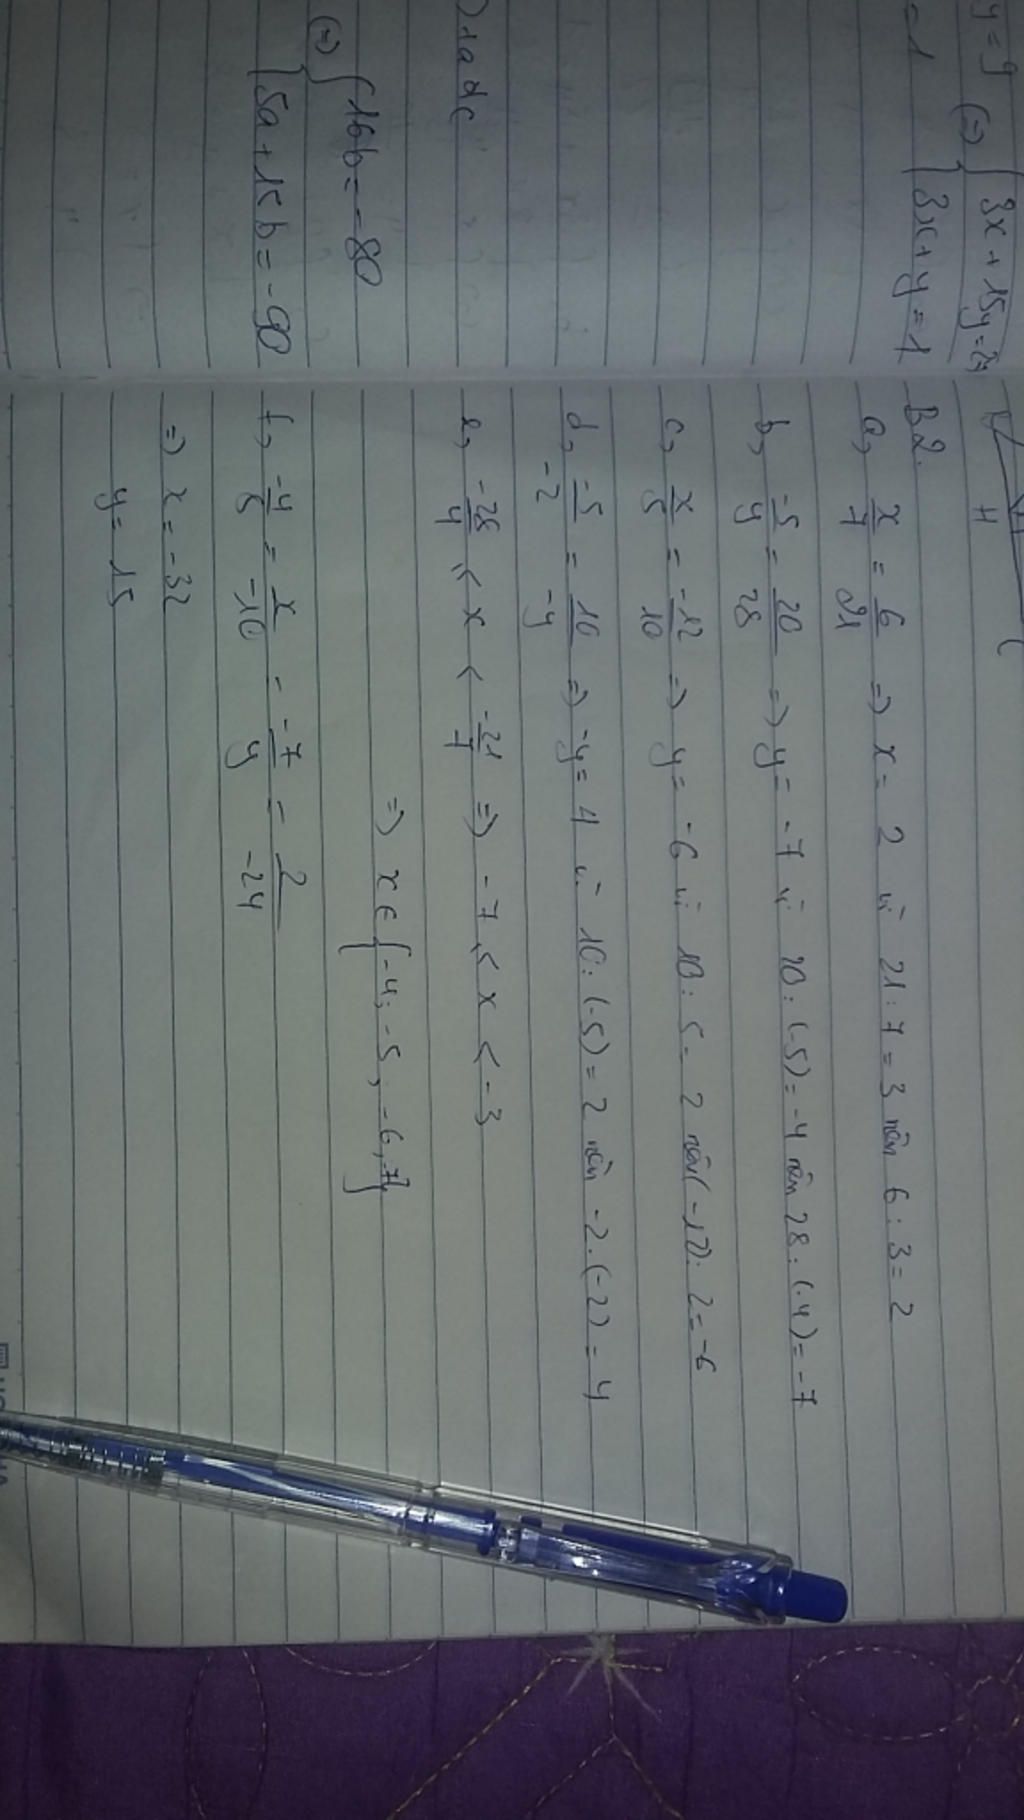 y = 9 (=) { 3x + 15y = 27
= 1 { 3x + y = 1
(=) { 16b = -80
{ 5a + 15b = -90
H
B2.
a, x/7 = 6/21 => x = 2 vì 21 : 7 = 3 nên 6 : 3 = 2
b, -5/y = 20/28 => y = -7 vì 20 : (-5) = -4 nên 28 : (-4) = -7
c, x/5 = -12/10 => y = -6 vì 10 : 5 = 2 nên (-12) : 2 = -6
d, -5/-2 = 10/-y => -y = 4 vì 10 : (-5) = 2 nên -2 . (-2) = 4
e, -28/4 ≤ x < -21/7 => -7 ≤ x < -3
=> x ∈ {-4; -5; -6; -7}
f, -4/8 = x/-10 = -7/y = 2/-24
=> x = -32
y = 15